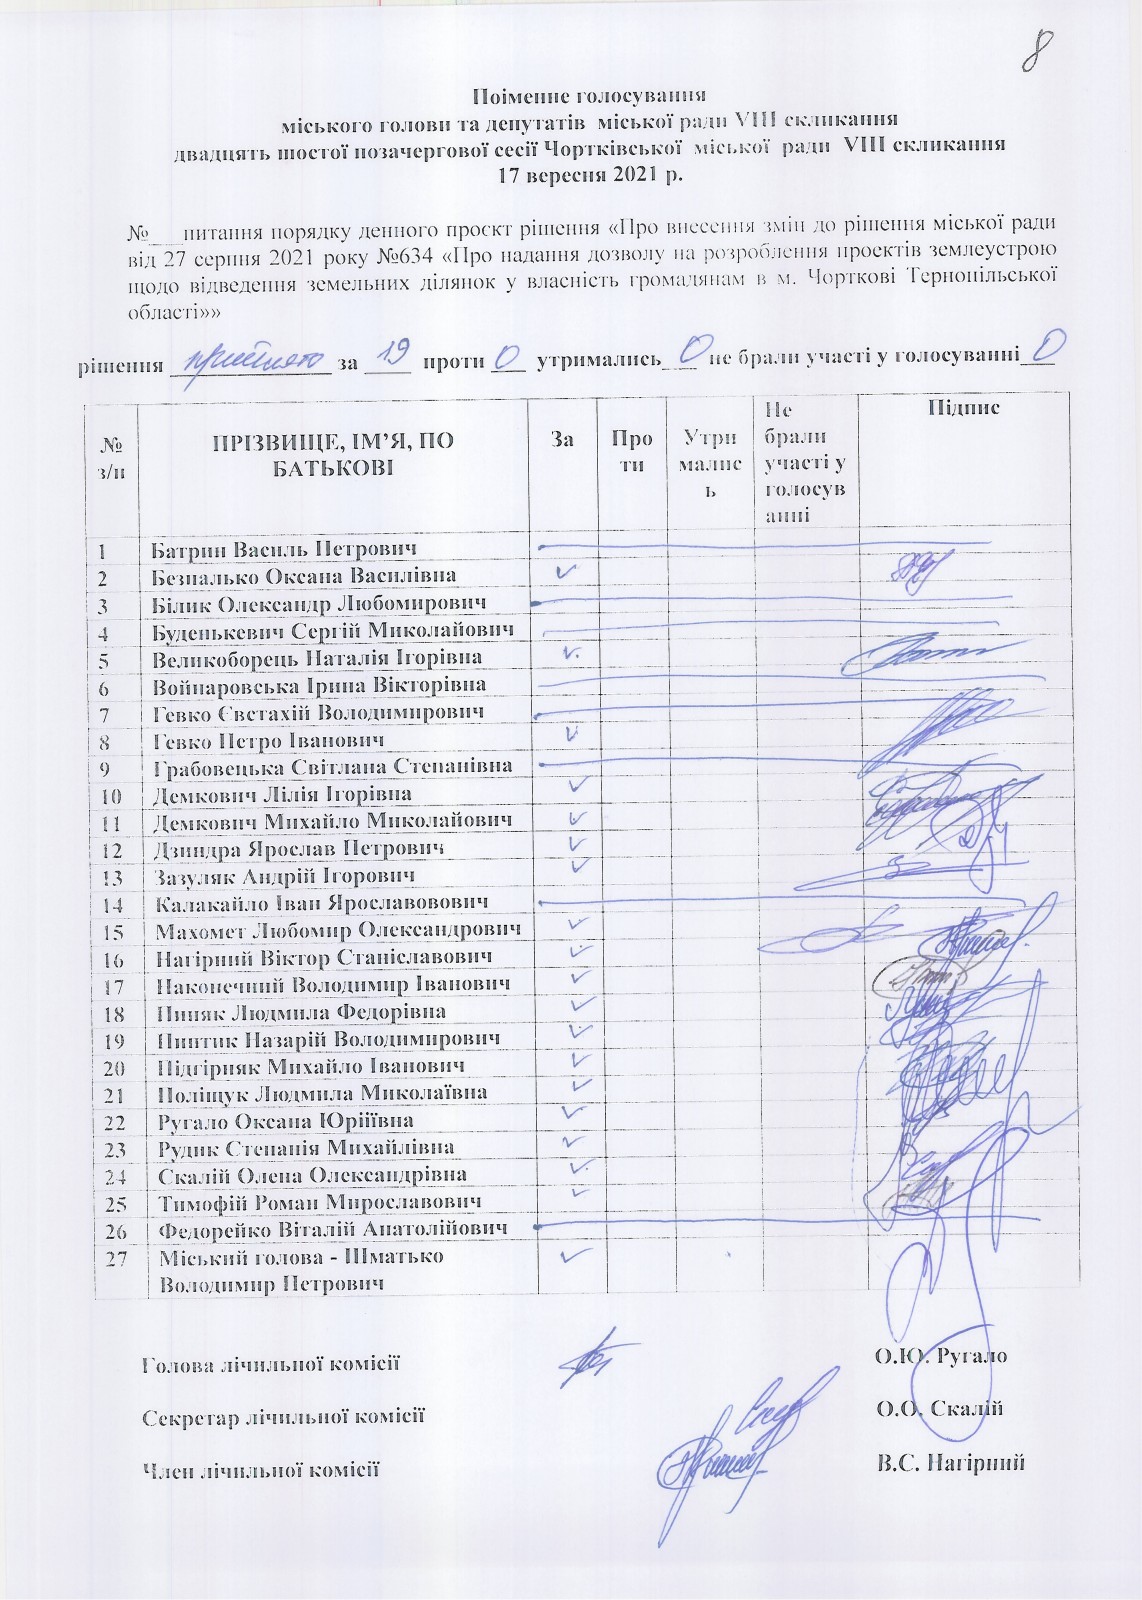 8
Поіменне голосування
міського голови та депутатів міської ради VIII скликання
двадцять шостої позачергової сесії Чортківської міської ради VIII скликання
17 вересня 2021 р.
№___питання порядку денного проєкт рішення «Про внесення змін до рішення міської ради
від 27 серпня 2021 року №634 «Про надання дозволу на розроблення проектів землеустрою
щодо відведення земельних ділянок у власність громадянам в м. Чорткові Тернопільської
області»»
рішення прийнято за 19 проти 0 утримались 0 не брали участі у голосуванні 0
№ з/п
ПРІЗВИЩЕ, ІМ’Я, ПО БАТЬКОВІ
За
Про ти
Утри малис ь
Не брали участі у голосув анні
Підпис
1 Батрин Василь Петрович
2 Безпалько Оксана Василівна ✓
3 Білик Олександр Любомирович
4 Буденькевич Сергій Миколайович
5 Великоборець Наталія Ігорівна ✓
6 Войнаровська Ірина Вікторівна
7 Гевко Євстахій Володимирович
8 Гевко Петро Іванович ✓
9 Грабовецька Світлана Степанівна
10 Демкович Лілія Ігорівна ✓
11 Демкович Михайло Миколайович ✓
12 Дзиндра Ярослав Петрович ✓
13 Зазуляк Андрій Ігорович ✓
14 Калакайло Іван Ярославовович
15 Махомет Любомир Олександрович ✓
16 Нагірний Віктор Станіславович ✓
17 Наконечний Володимир Іванович ✓
18 Пиняк Людмила Федорівна ✓
19 Пинтик Назарій Володимирович ✓
20 Підгірняк Михайло Іванович ✓
21 Поліщук Людмила Миколаївна ✓
22 Ругало Оксана Юріїївна ✓
23 Рудик Степанія Михайлівна ✓
24 Скалій Олена Олександрівна ✓
25 Тимофій Роман Мирославович ✓
26 Федорейко Віталій Анатолійович
27 Міський голова - Шматько ✓
Володимир Петрович
Голова лічильної комісії О.Ю. Ругало
Секретар лічильної комісії О.О. Скалій
Член лічильної комісії В.С. Нагірний